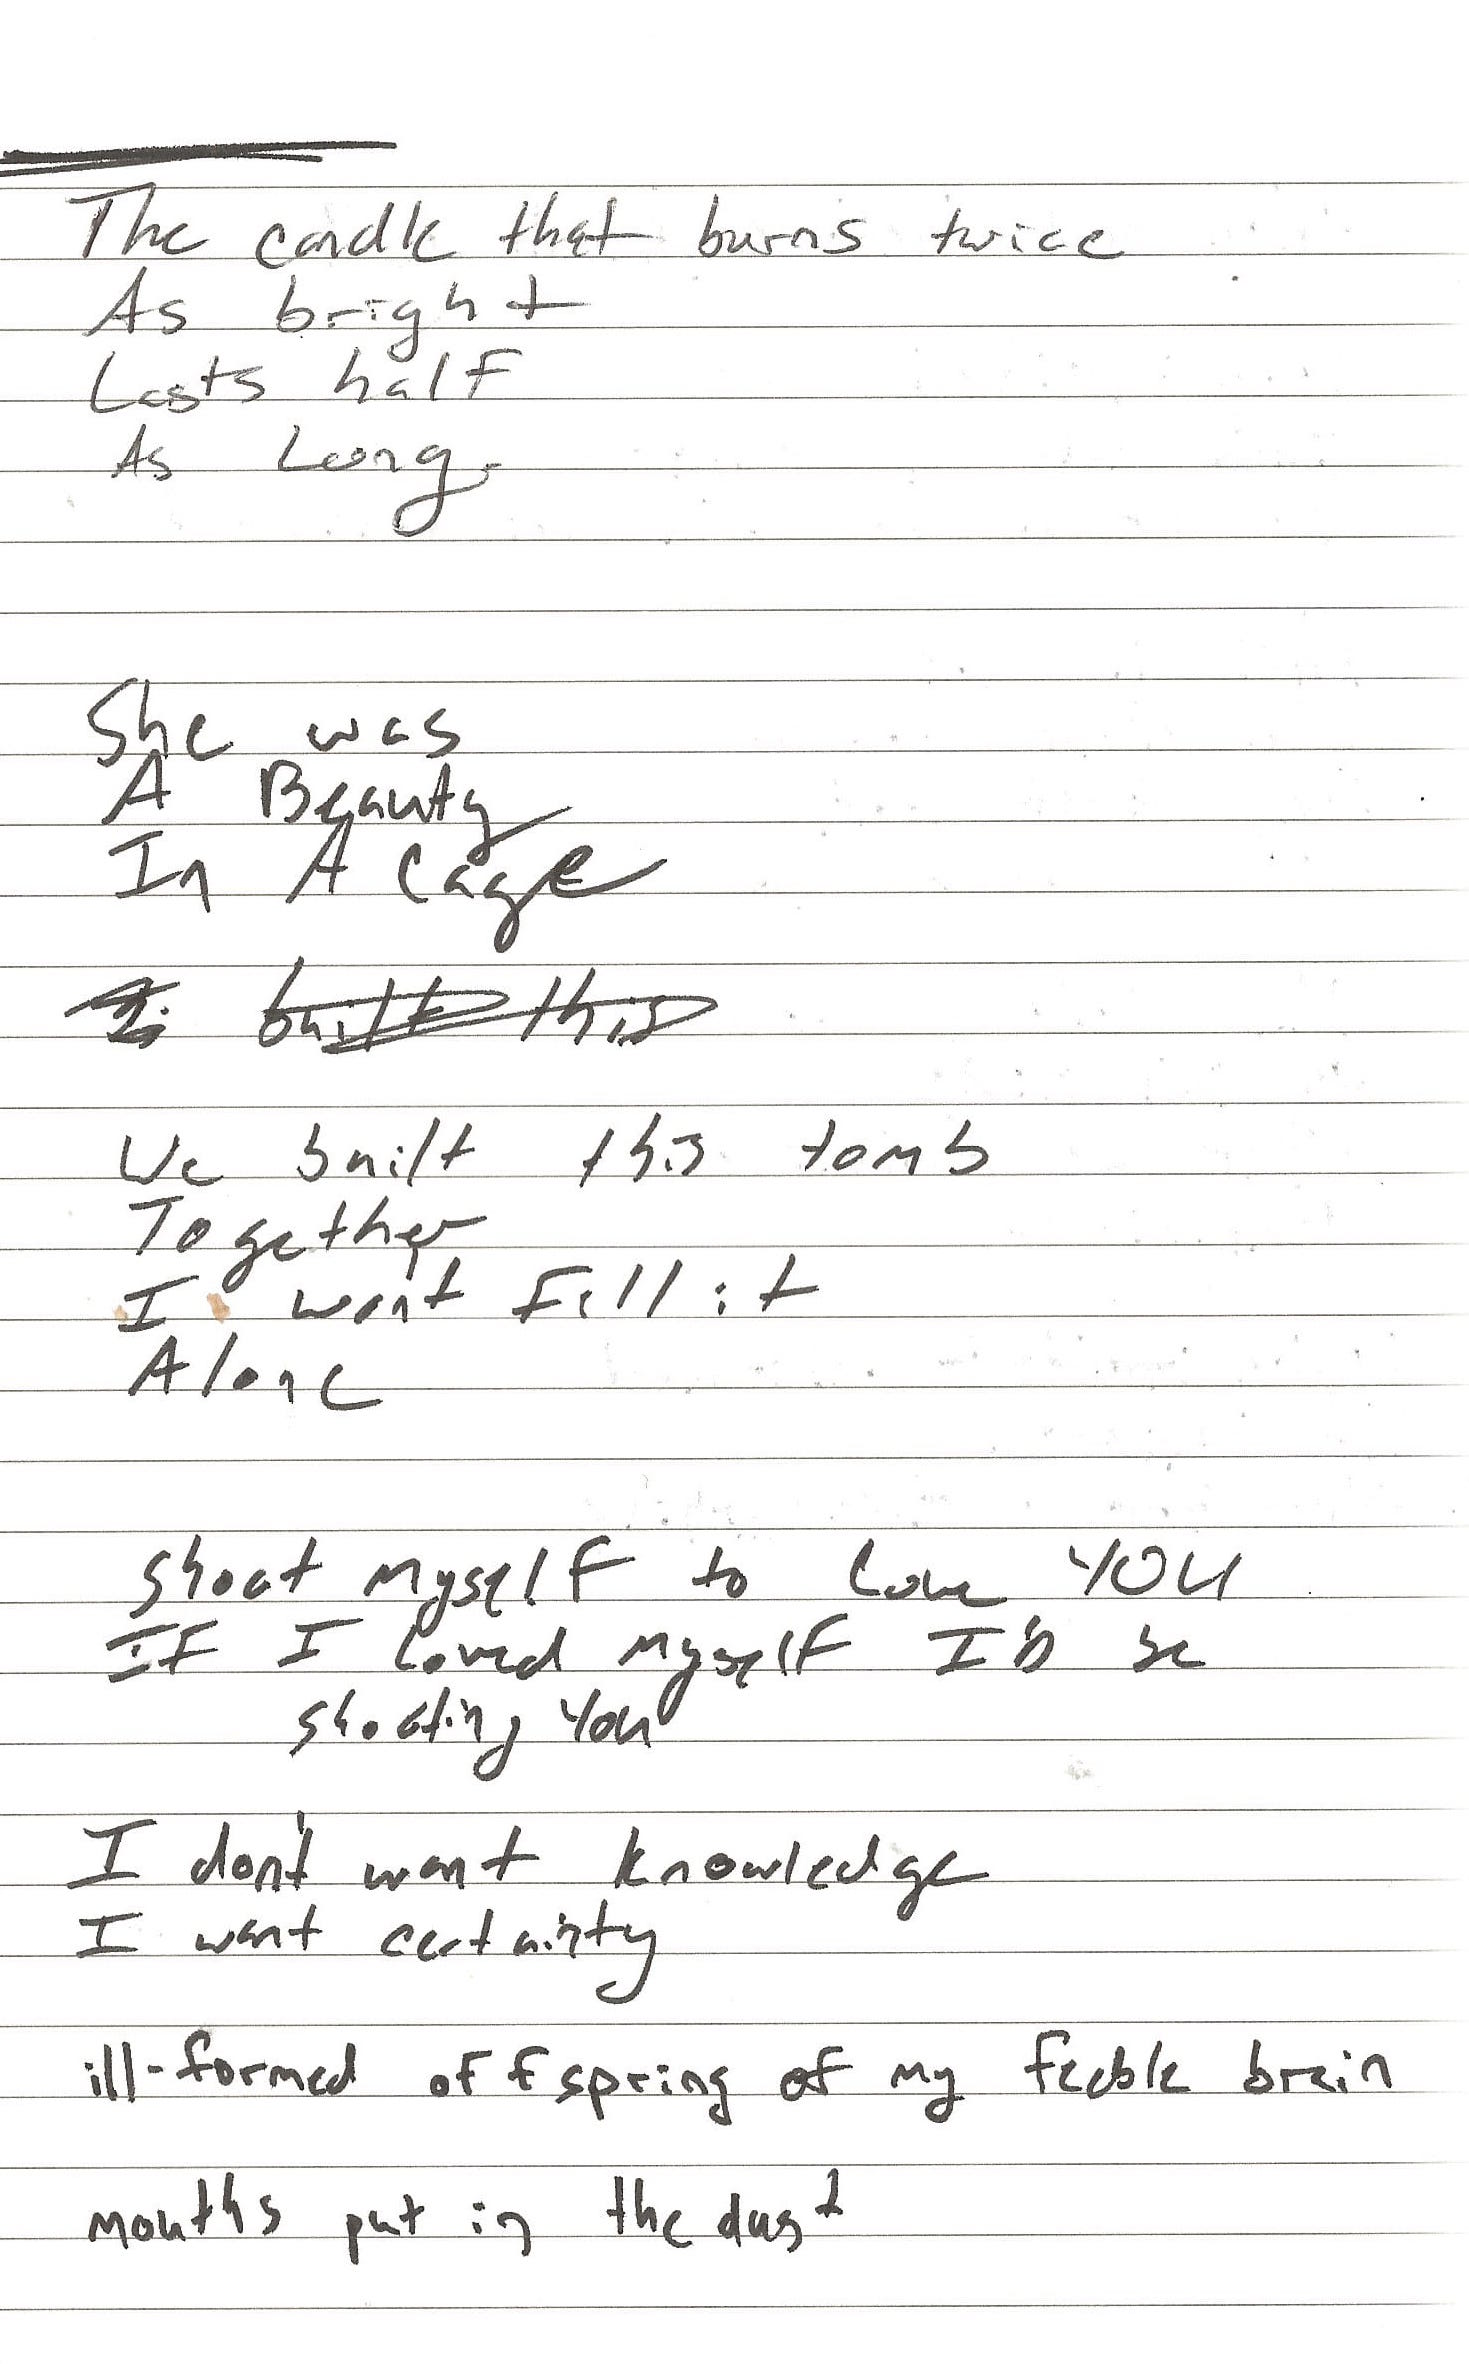 The candle that burns twice
As bright
Lasts half
As Long.
She was
A Beauty
In A Cage
built this
We built this tomb
Together
I wont fill it
Alone
Shoot myself to Love YOU
IF I Loved myself I'D be
shooting You
I don't want knowledge
I want certainty
ill-formed offspring of my feeble brain
mouths put in the dust